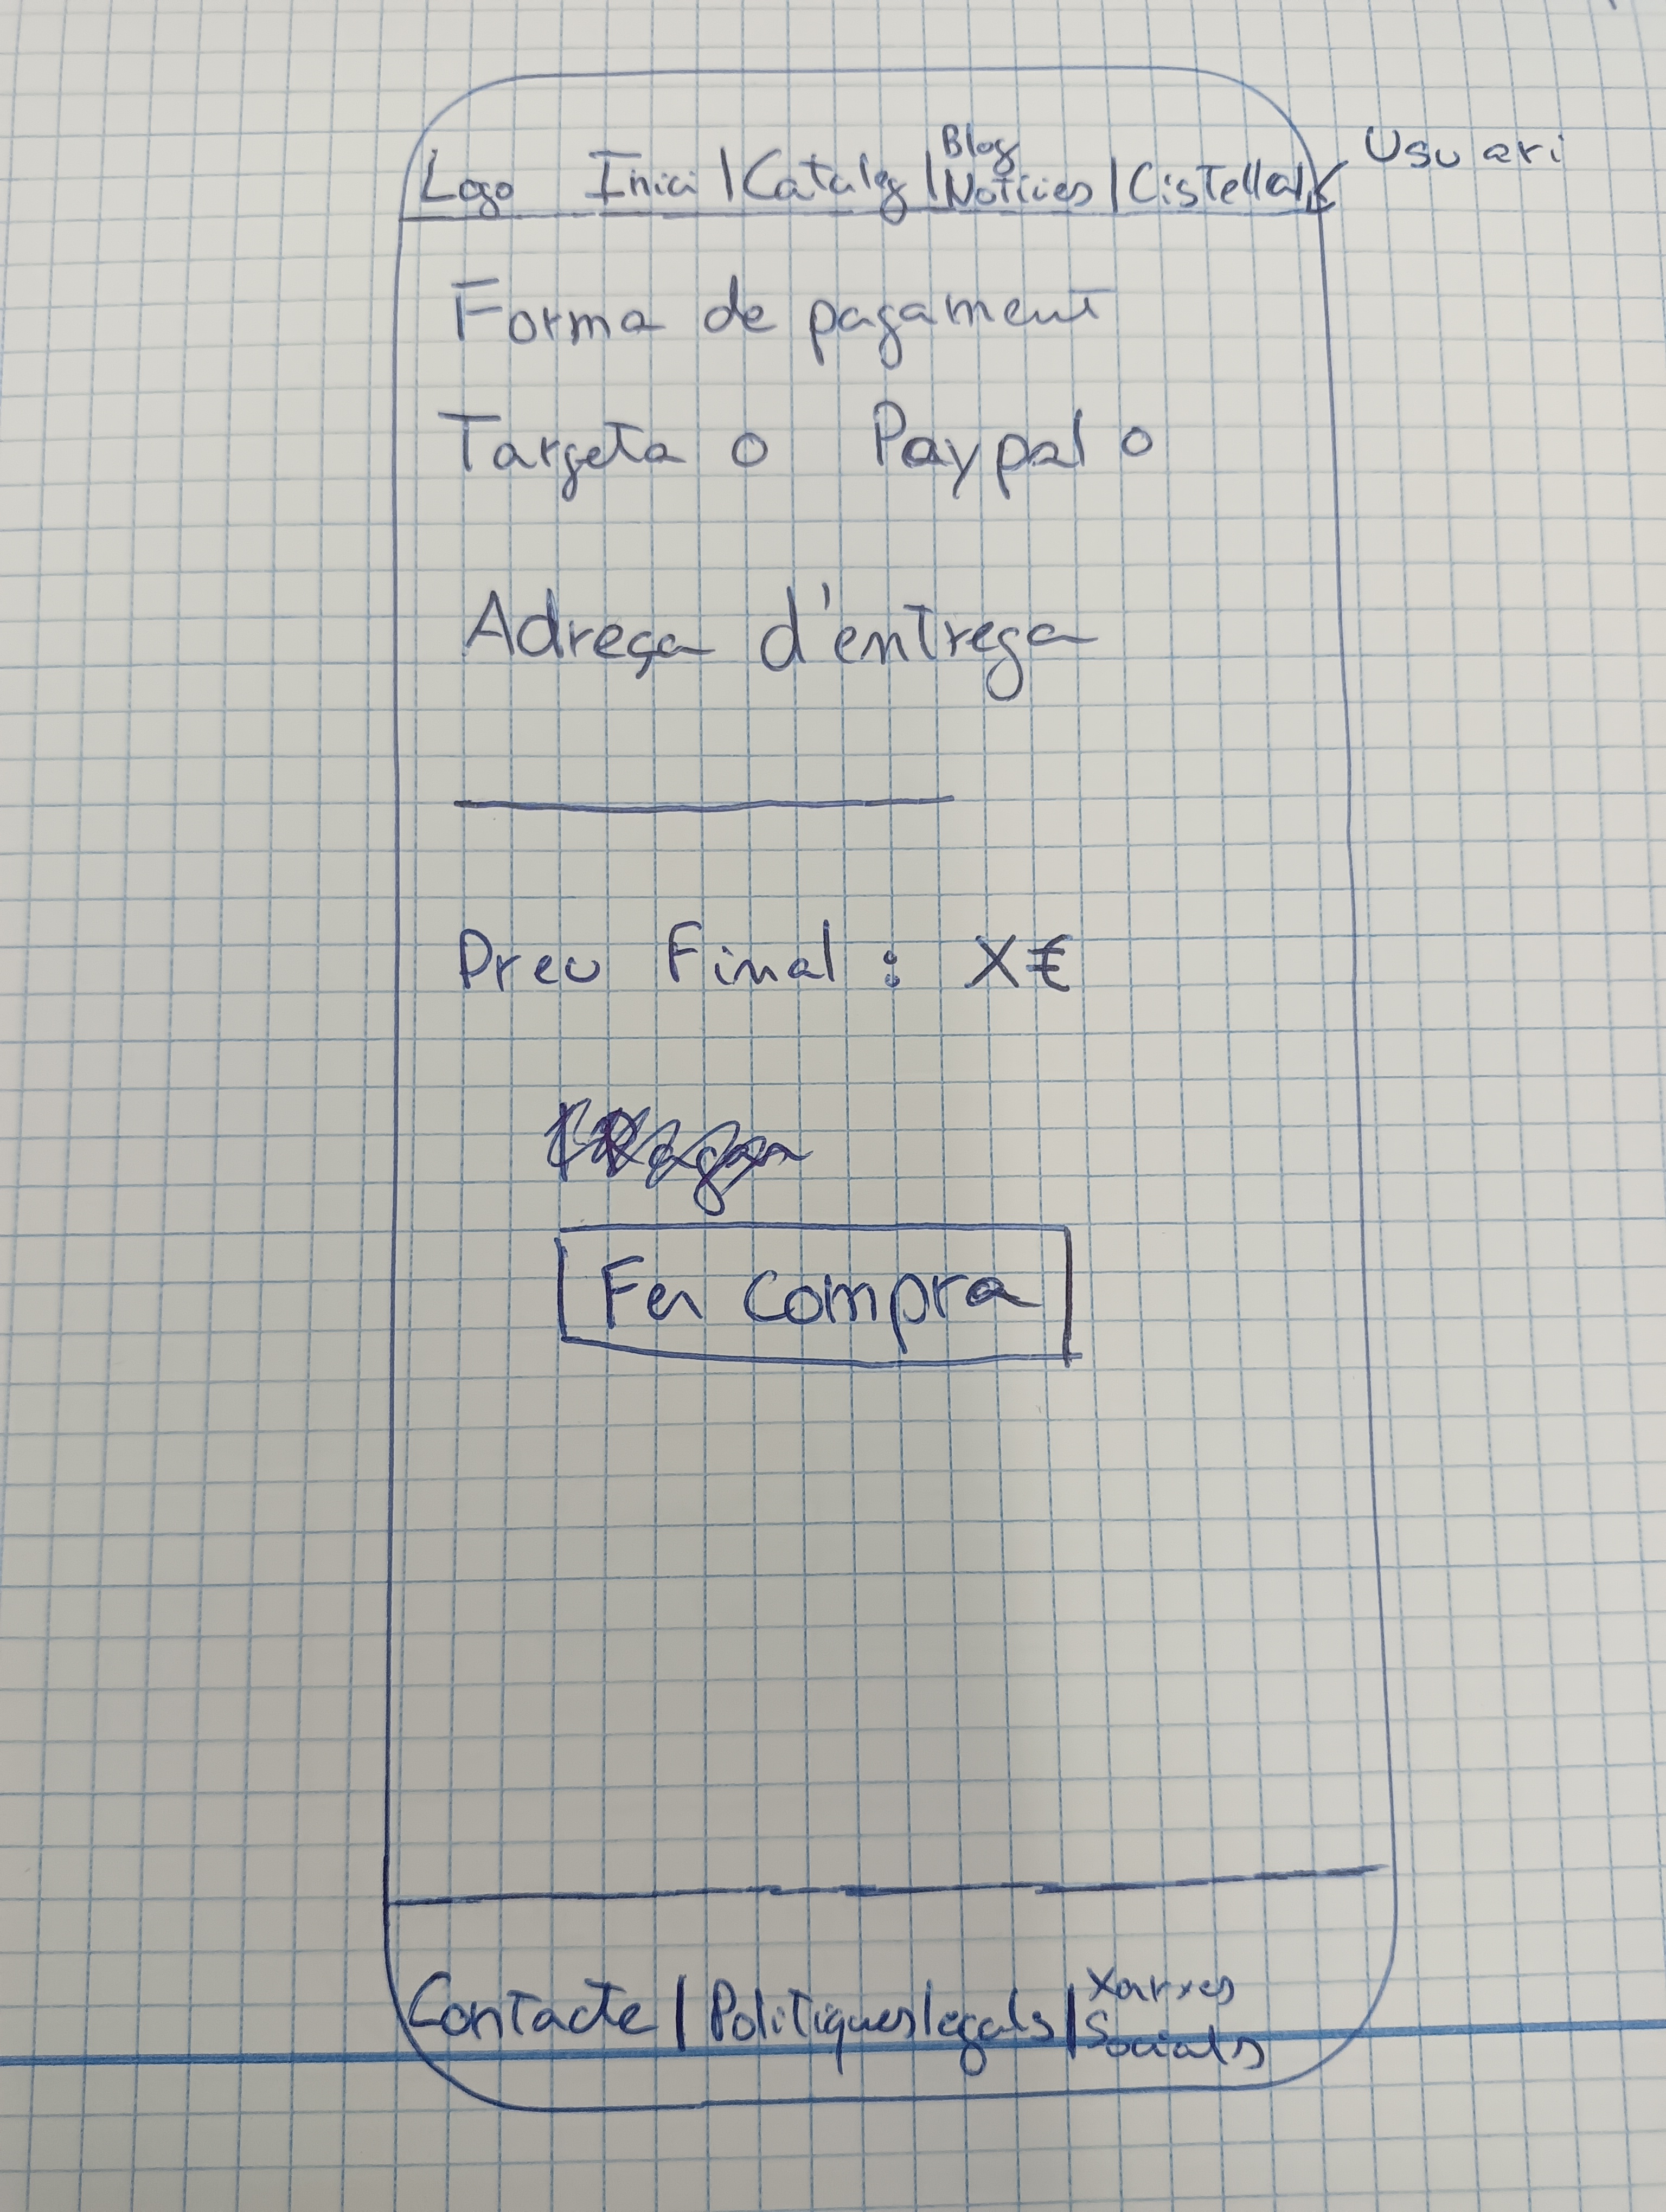 Usuari
Logo Inici | Catàleg | Blog Notícies | Cistella |
Forma de pagament
Targeta o Paypal o
Adreça d'entrega
Preu Final : X€
Fer compra
Contacte | Polítiques legals | Xarxes Socials